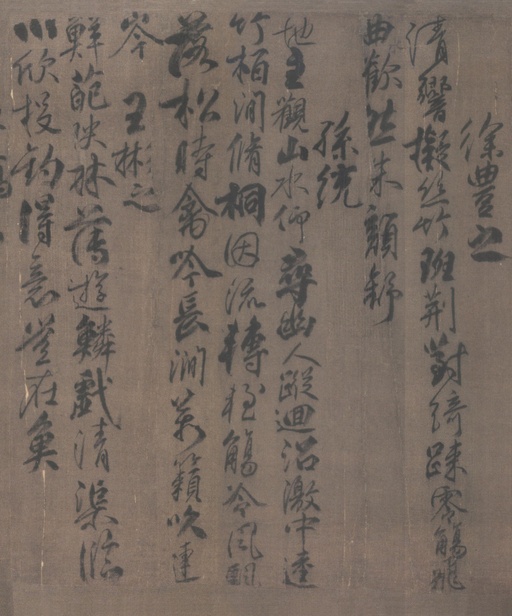 徐豊之
清響擬絲竹班荆對綺踈零觴飛
曲歡然朱顏舒
孫統
地主觀山水仰尋幽人蹤迴沼激中逵
竹柏間脩桐因流轉輕觴冷風飄
落松時禽吟長澗萬籟吹連
岑 王彬之
鮮葩映林薄遊鱗戲清渠臨
川欣投釣得意豈在魚